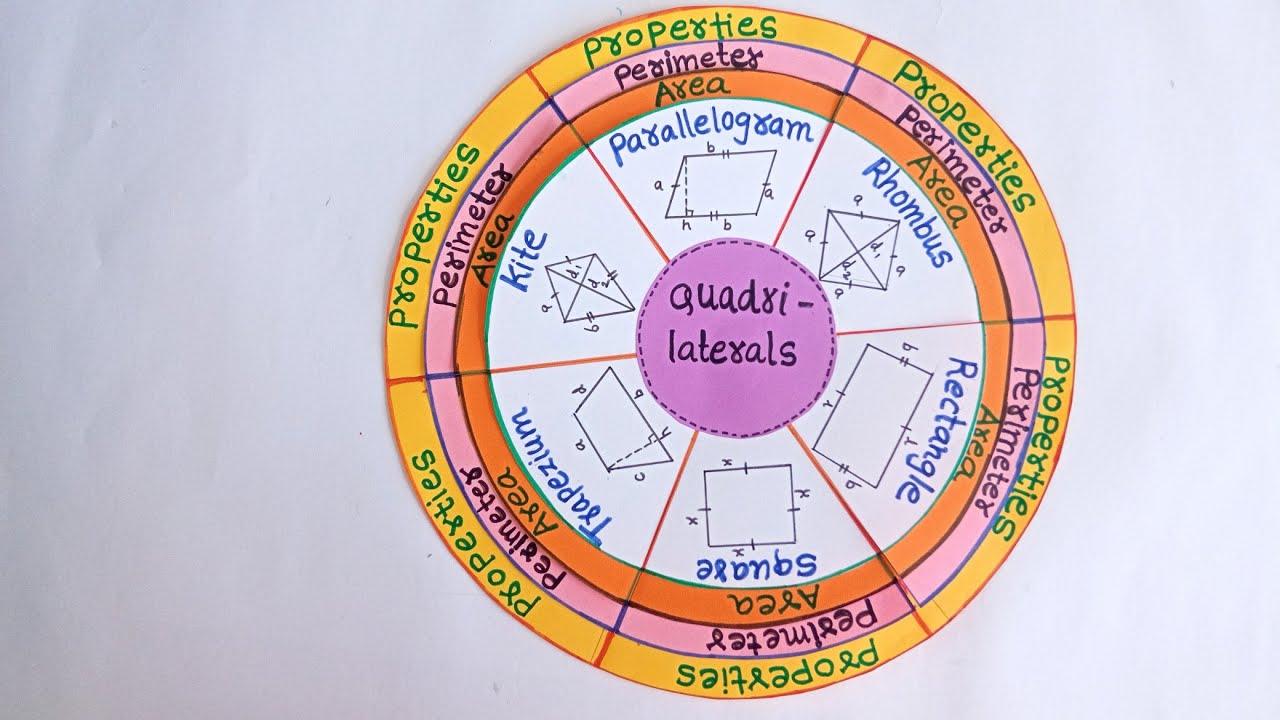 Quadri-
laterals
Properties
Perimeter
Area
Parallelogram
b
a
a
h
b
Properties
Perimeter
Area
Rhombus
a
a
d1
d2
a
a
Properties
Perimeter
Area
Rectangle
b
l
l
b
Properties
Perimeter
Area
Square
x
x
x
x
Properties
Perimeter
Area
Trapezium
d
b
a
h
c
Properties
Perimeter
Area
Kite
d1
d2
a
b